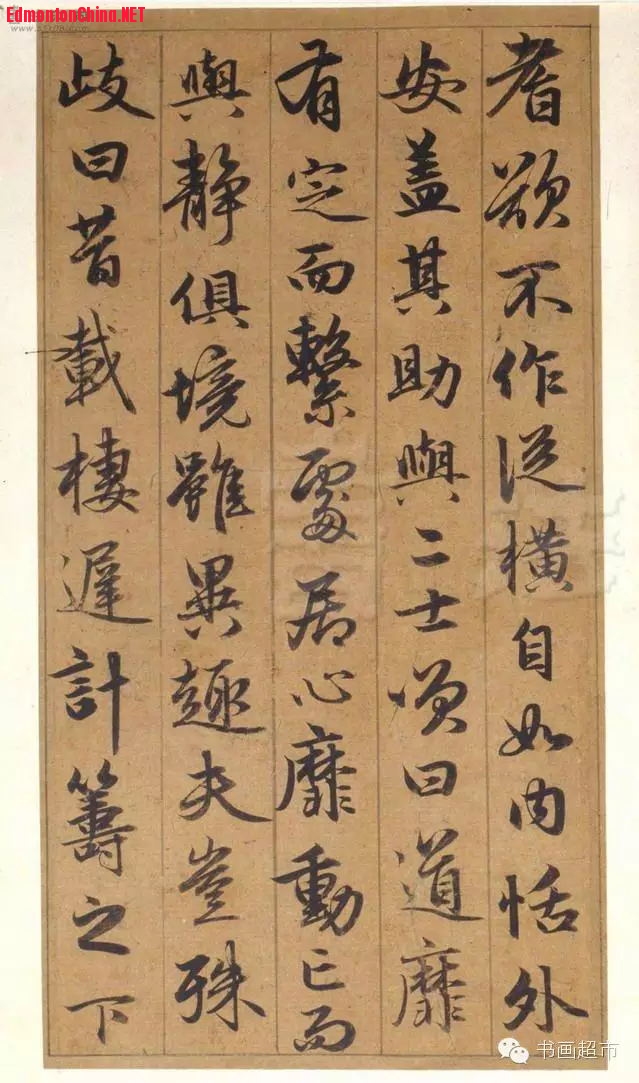 EdmontonChina.NET
耆欲不作從橫自如内恬外
安盖其助與二士頌曰道靡
有定而繫處居心靡動亡而
與静俱境雖異趣夫豈殊
歧曰昔載棲遲計籌之下
书画超市